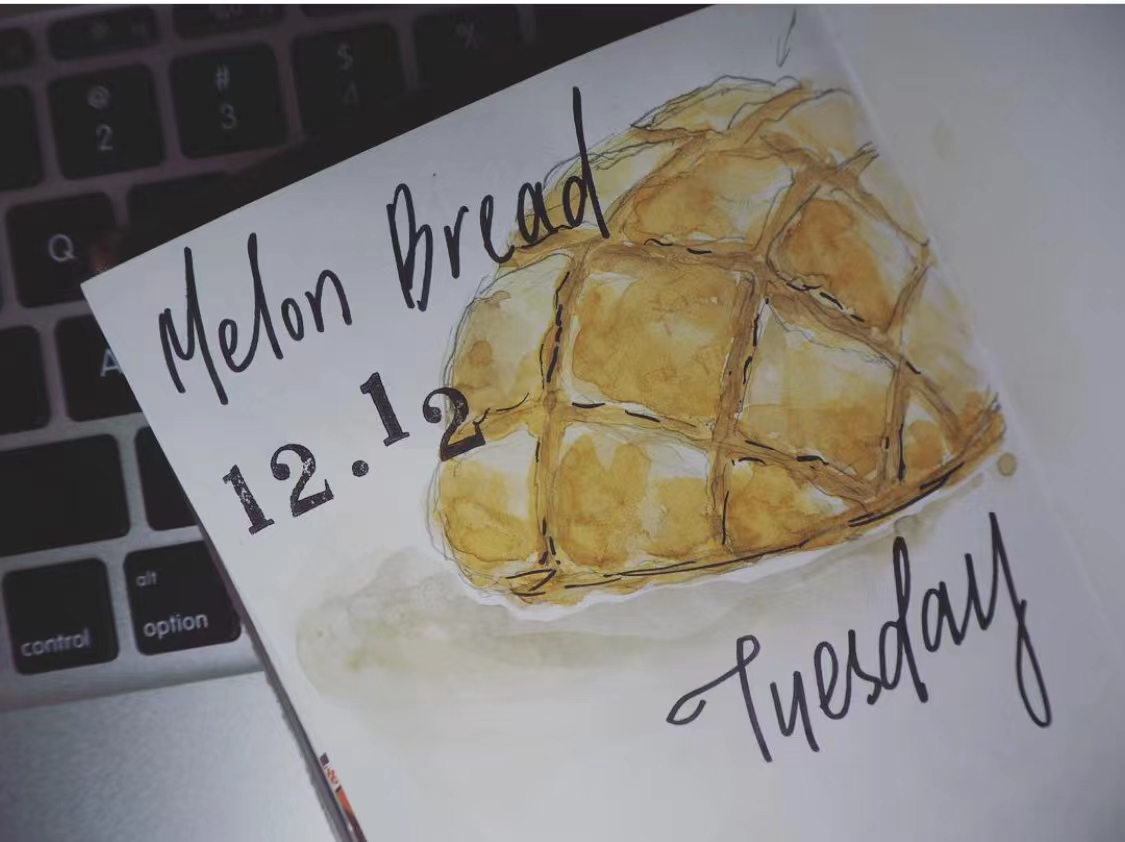 @
2
#
3
$
4
%
Q
A
control
alt
option
Melon Bread
12.12
Tuesday